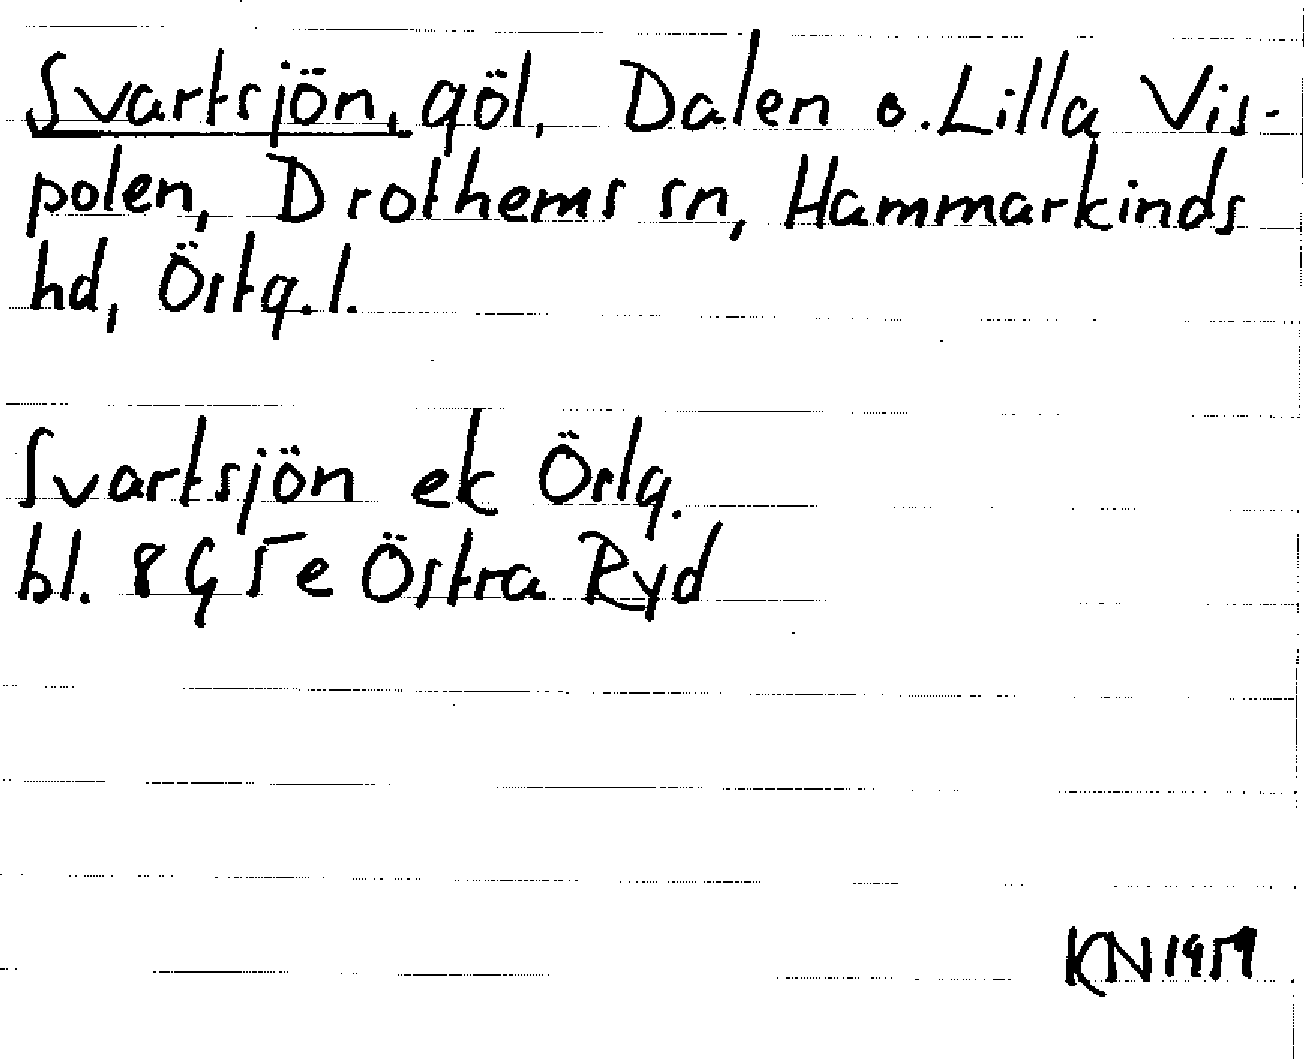 Svartsjön, göl, Dalen o. Lilla Vis-
polen, Drothems sn, Hammarkinds
hd, Östg.l.
Svartsjön ek Östg.
bl. 8G 5e Östra Ryd
KN 1959